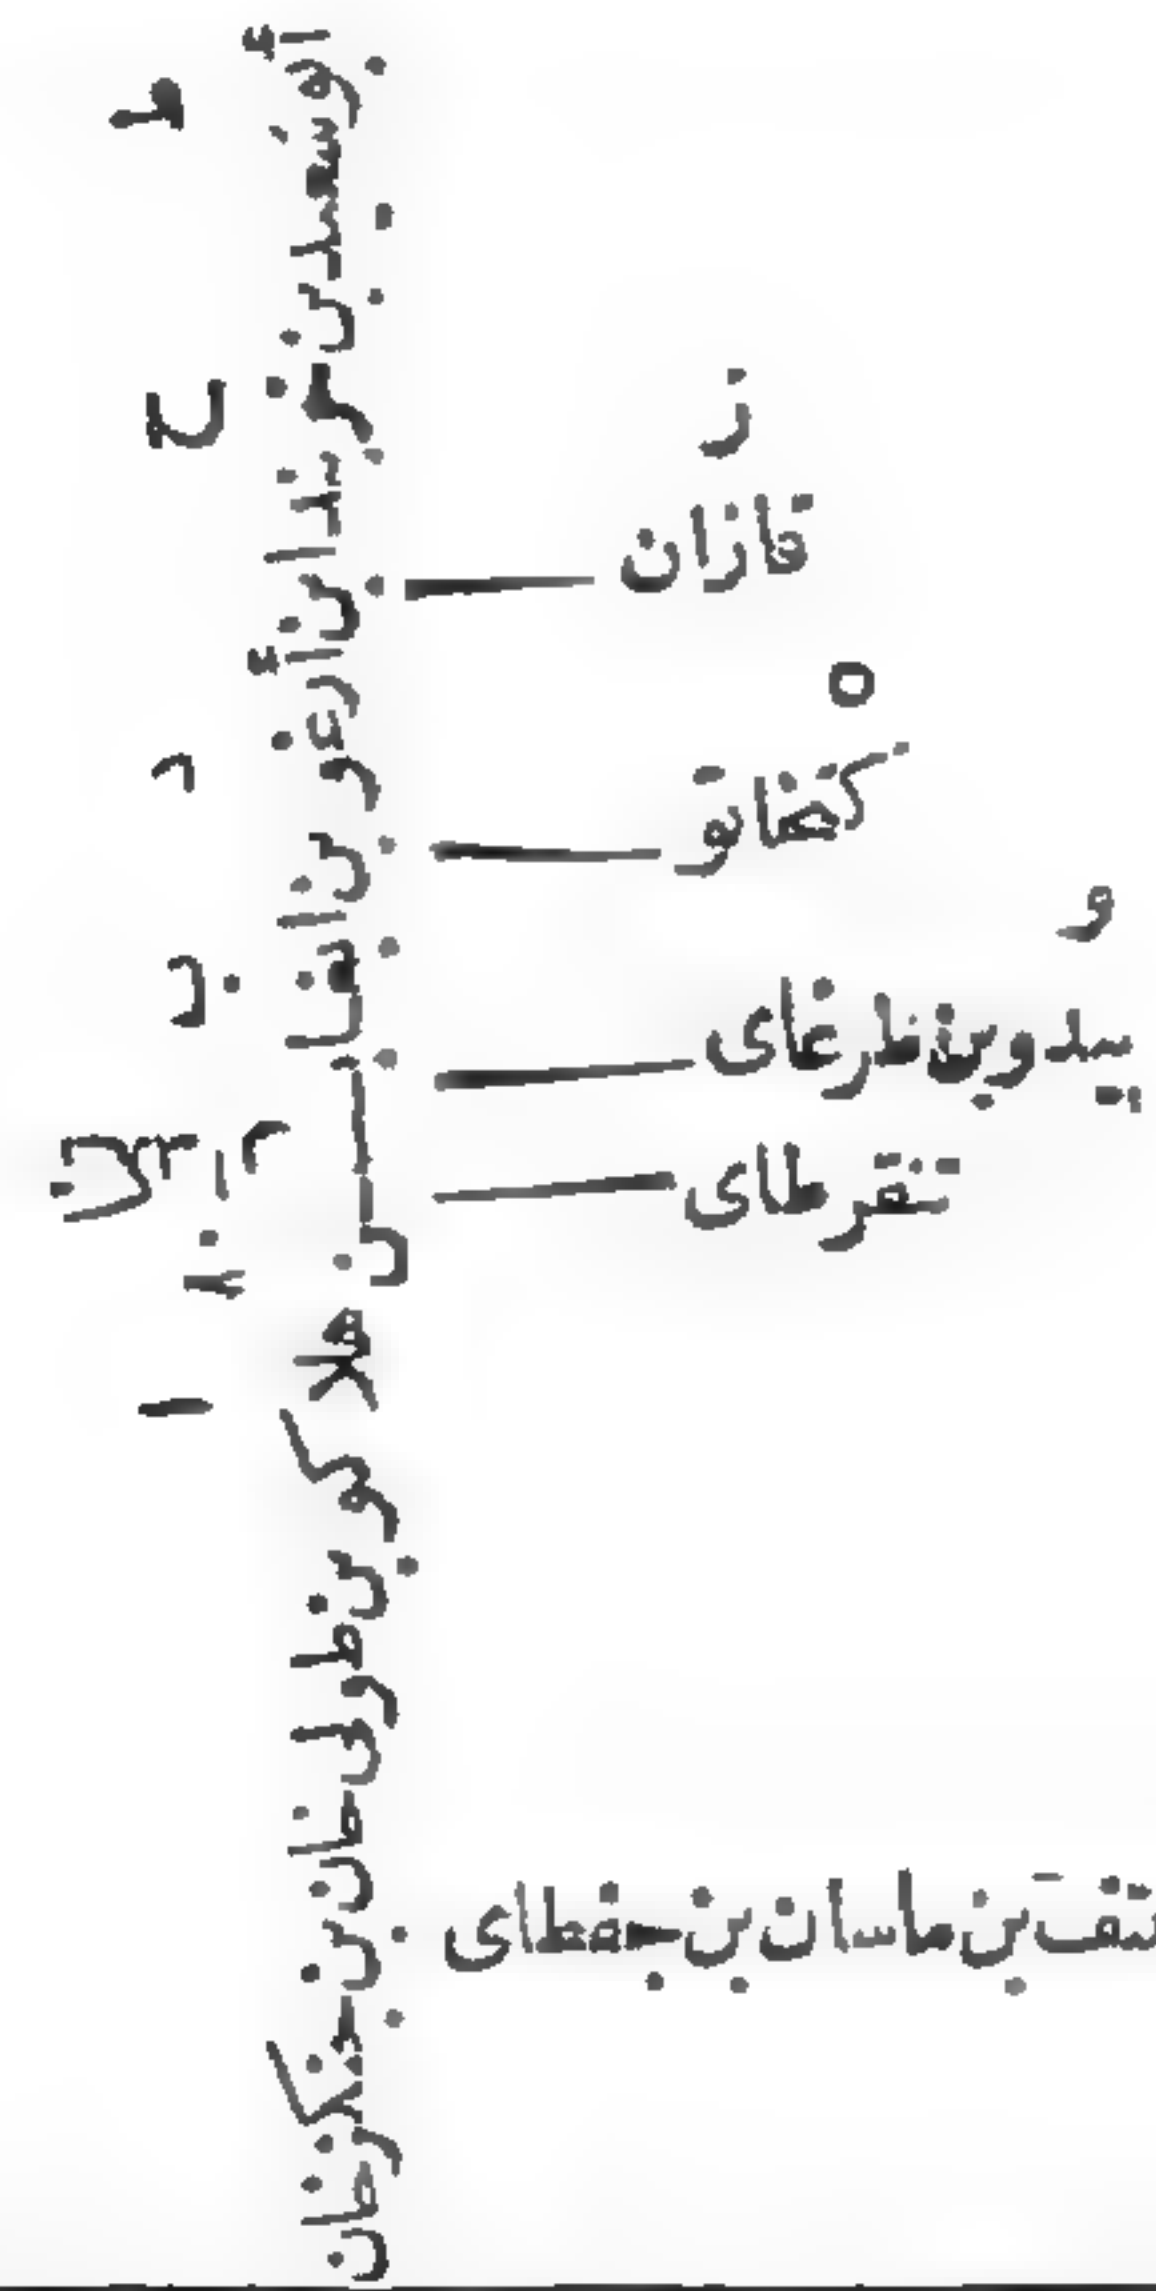 أبو سعيد بن خربندا بن أرغو بن ابغا بن هلاكو بن طولى خان بن جنكزخان
ط
ح
ز
قازان
ه
د
و
بيدو بن طرغاى
تنقرطاى
ا
بن ماسان بن جفطاى